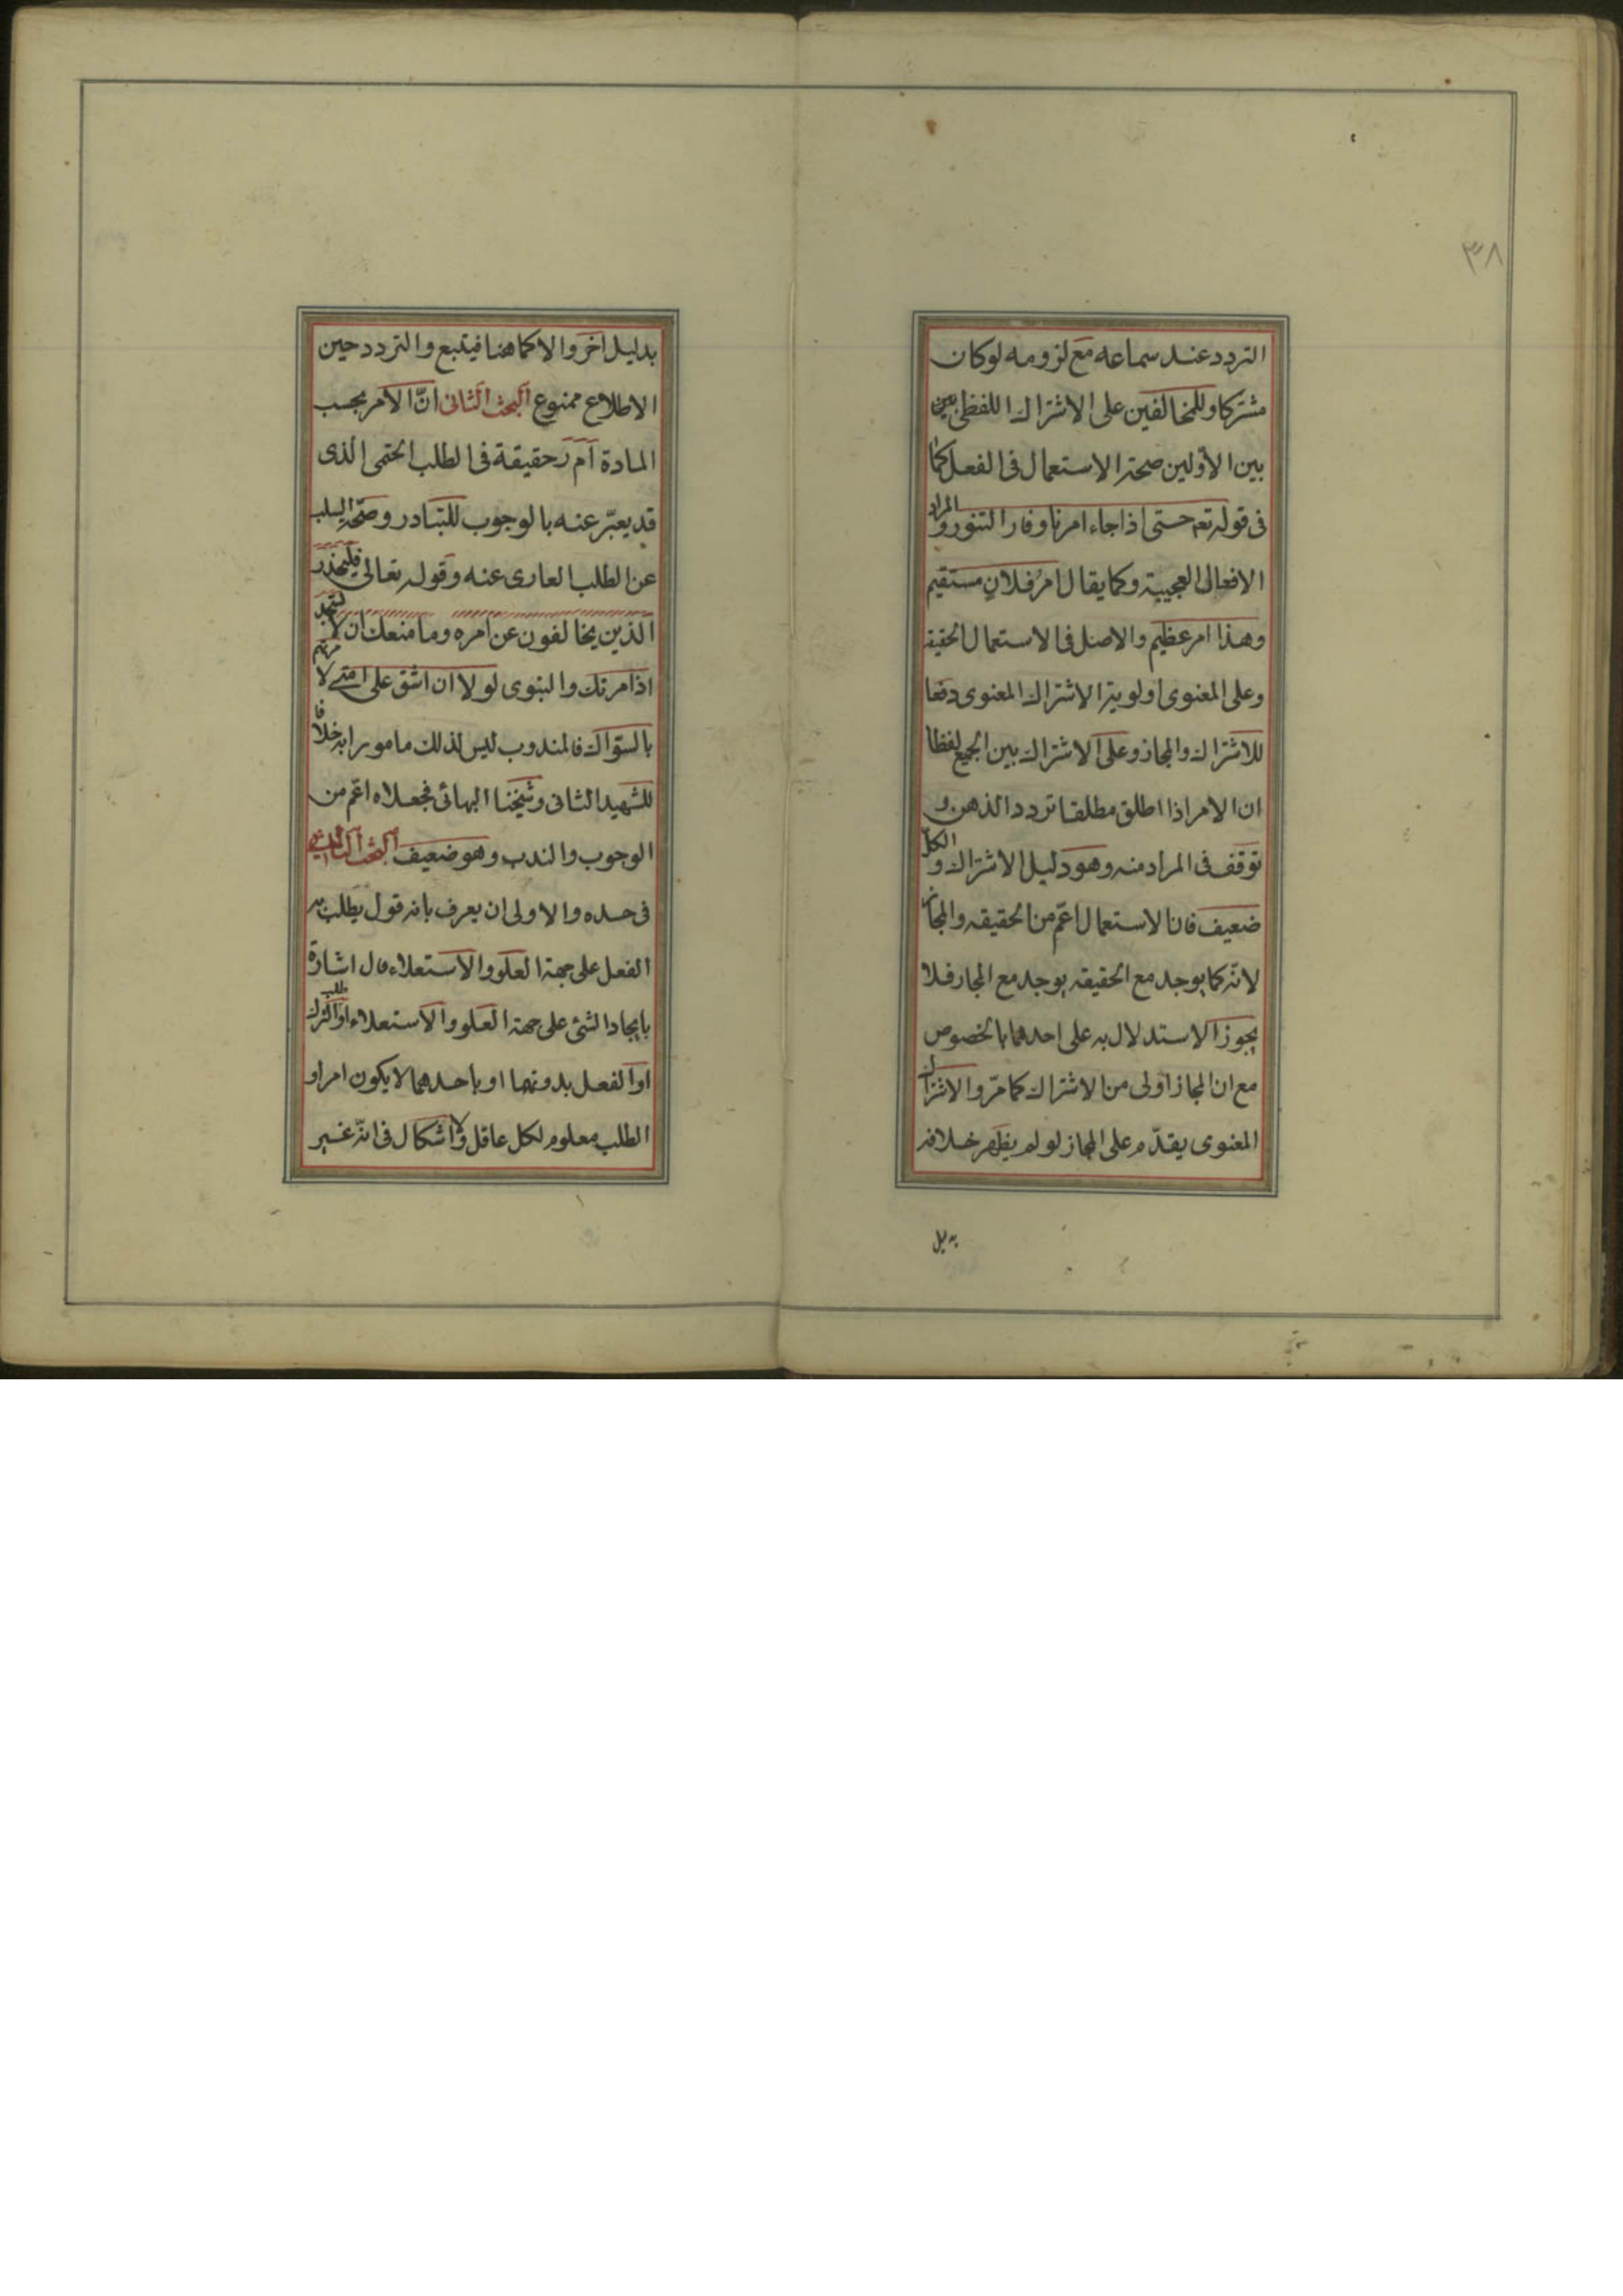 ٣٨
التردد عند سماعه مع لزومه لو كان
مشتركا وللمخالفين على الاشتراك اللفظى بين
بين الاولين صحة الاستعمال فى الفعل كما
فى قوله تع حتى اذا جاء امرنا وفار التنور و المراد
الافعال العجيبة وكما يقال امر فلان مستقيم
وهذا امر عظيم والاصل فى الاستعمال الحقيقة
وعلى المعنوى اولوية الاشتراك المعنوى دفعا
للاشتراك والمجاز وعلى الاشتراك بين الجميع لفظا
ان الامر اذا اطلق مطلقا تردد الذهن و
توقف فى المراد منه وهو دليل الاشتراك و الكل
ضعيف فان الاستعمال اعم من الحقيقه والمجاز
لانّه كما يوجد مع الحقيقه يوجد مع المجاز فلا
يجوز الاستدلال به على احدهما بالخصوص
مع ان المجاز اولى من الاشتراك كما مرّ والاشتراك
المعنوى يقدّم على المجاز لو لم يظهر خلافه
بدليل
بدليل اخر والا كما هنا فيتبع والتردد حين
الاطلاع ممنوع البحث الثانى انّ الامر بحسب
المادة ا م ر حقيقة فى الطلب الحتمى الذى
قد يعبّر عنه بالوجوب للتبادر وصحّة السلب
عن الطلب العارى عنه وقوله تعالى فليحذر
الذين يخالفون عن امره وما منعك ان لا تسجد
اذ امرتك والنبوى لولا ان اشق على امتى لامرتهم
بالسّواك فالمندوب ليس لذلك مامورا به خلافا
للشهيد الثانى وشيخنا البهائى فجعلاه اعم من
الوجوب والندب وهو ضعيف البحث الثالث
فى حده والاولى ان يعرف بانه قول يطلب به
الفعل على جهة العلو والاستعلاء فالاشارة
بايجاد الشئ على جهة العلو والاستعلاء او طلب الترك
او الفعل بدونهما او باحدهما لا يكون امرا و
الطلب معلوم لكل عاقل ولا اشكال فى انّه غير